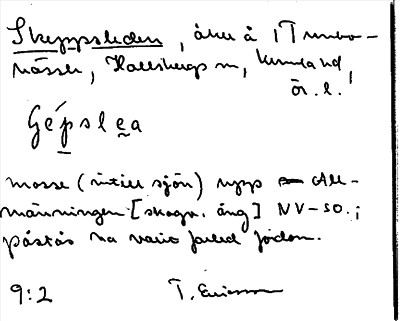 Skeppsleden, åker å 1 Tunbo-
nässle, Hallsbergs sn, Kumla hd,
ör. l.
Gépslea
mosse (intill sjön) upp All-
männingen [skogv. äng] NV-SO.;
påstås ha varit farled fordom.
9:2 T. Ericsson